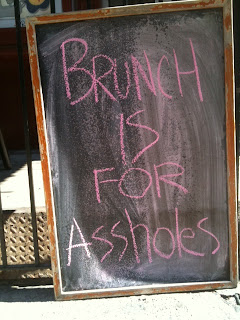 BRUNCH
IS
FOR
Assholes